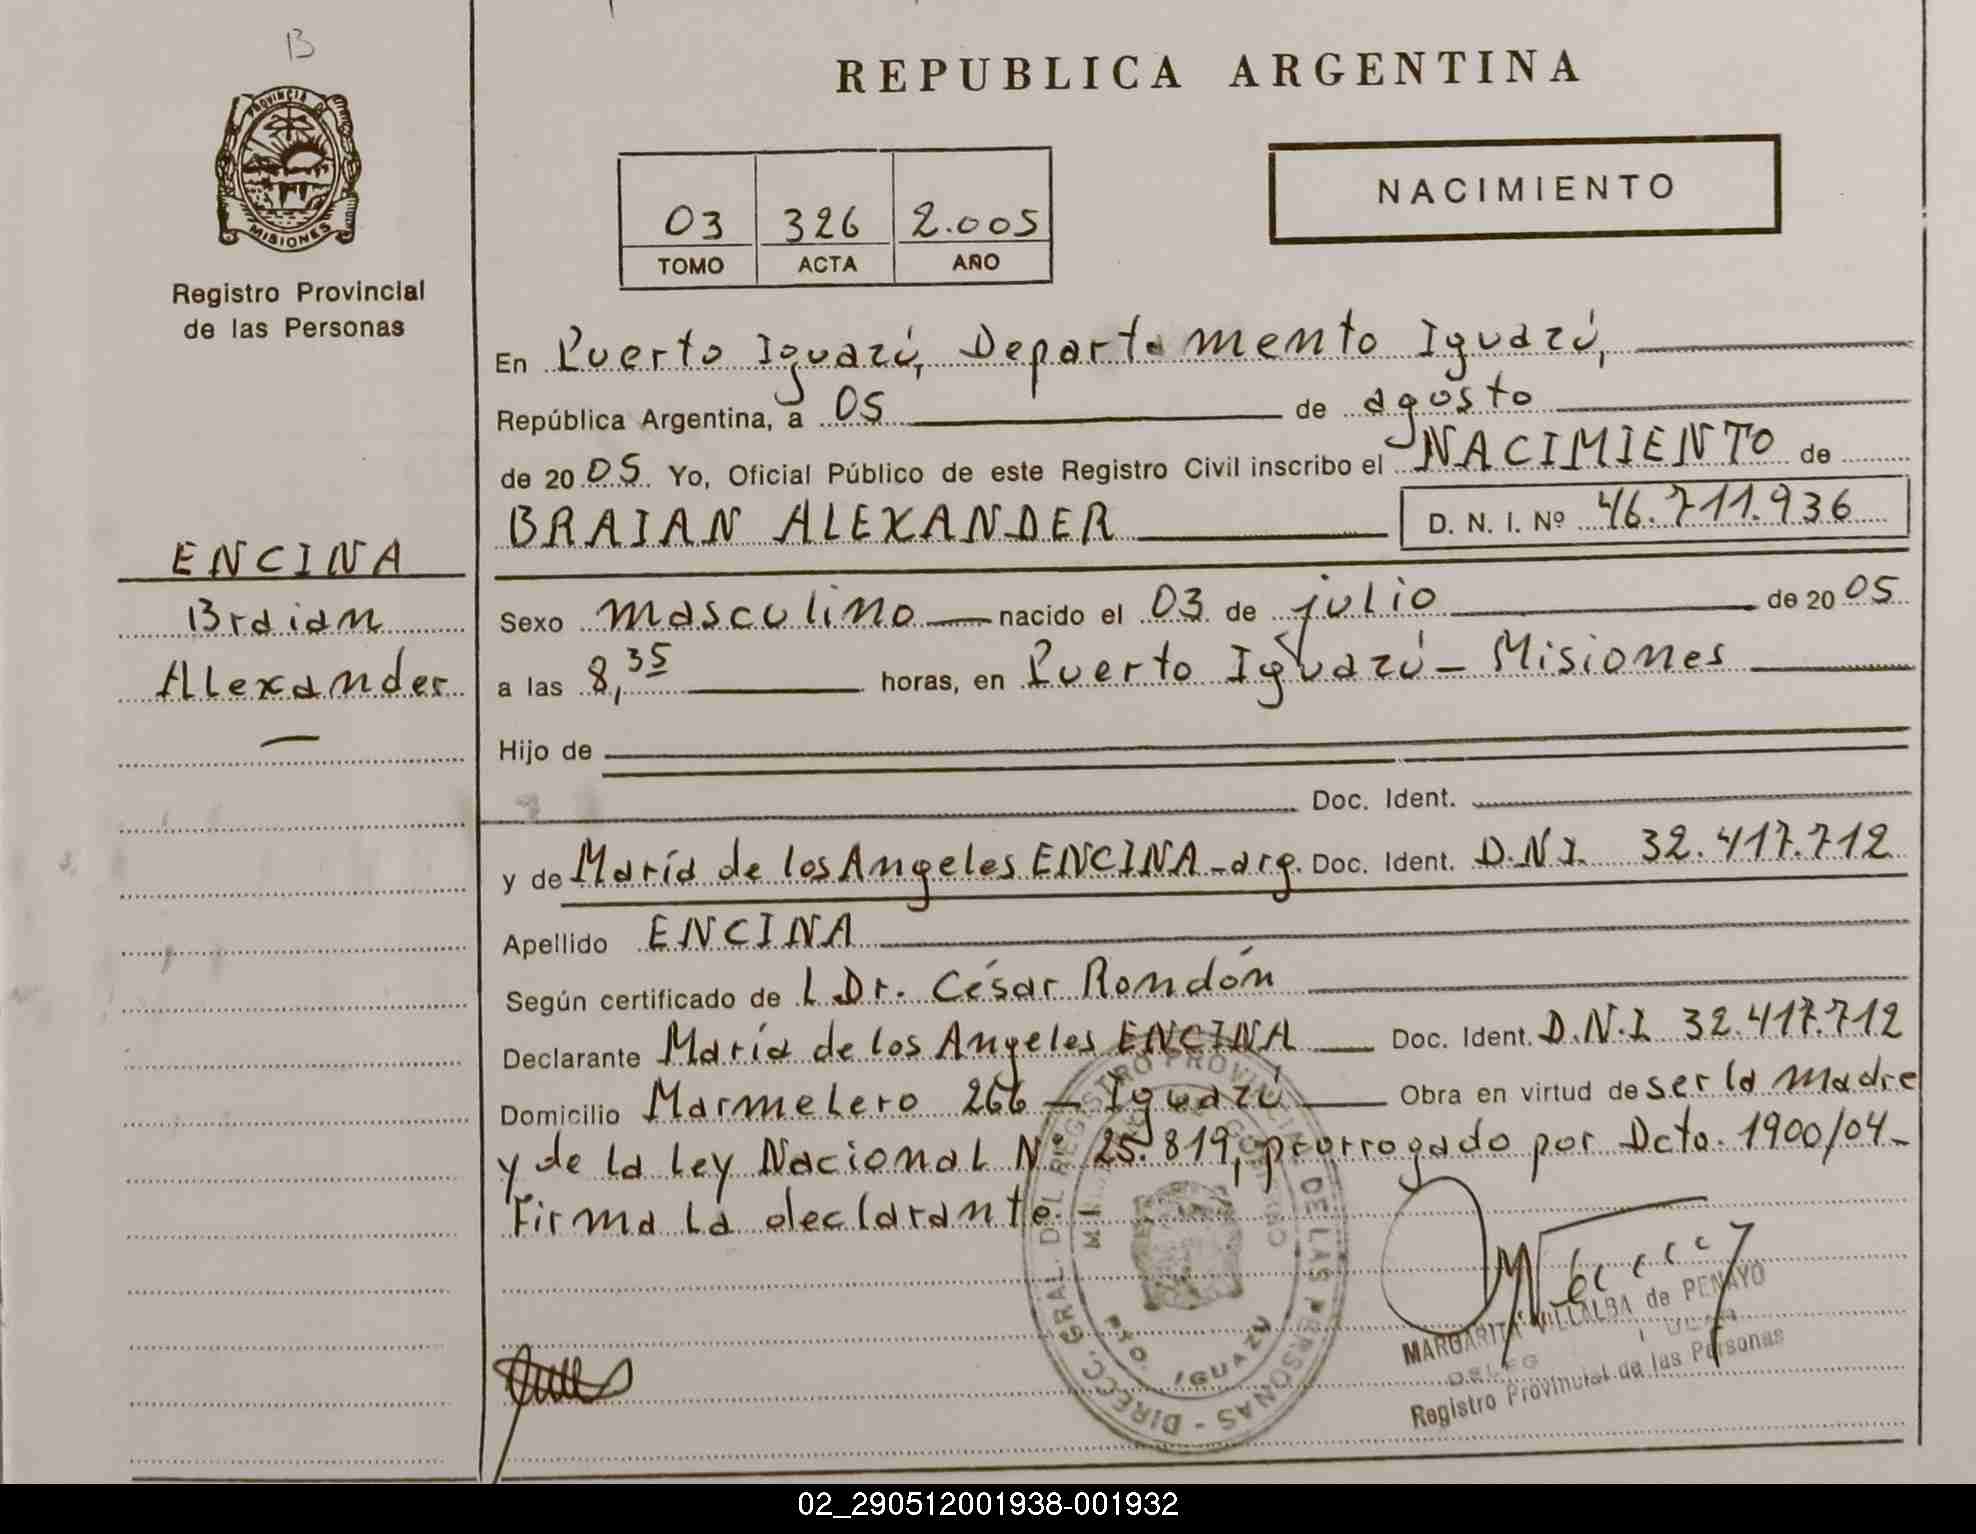 B
REPUBLICA ARGENTINA
PROVINCIA DE
MISIONES
Registro Provincial
de las Personas
NACIMIENTO
03 326 2.005
TOMO ACTA AÑO
En Puerto Iguazú, Departamento Iguazú,
República Argentina, a 05 de agosto
de 2005 Yo, Oficial Público de este Registro Civil inscribo el NACIMIENTO de
BRAIAN ALEXANDER D. N. I. Nº 46.711.936
ENCINA
Braian
Alexander
Sexo masculino nacido el 03 de julio de 2005
a las 8,35 horas, en Puerto Iguazú - Misiones
Hijo de
Doc. Ident.
y de María de los Angeles ENCINA - arg. Doc. Ident. D.N.I. 32.417.712
Apellido ENCINA
Según certificado de l Dr. César Rondón
Declarante María de los Angeles ENCINA Doc. Ident. D.N.I 32.417.712
Domicilio Marmelero 266 - Iguazú Obra en virtud de ser la madre
y de la Ley Nacional Nº 25.819, prorrogado por Dcto. 1900/04-
Firma la declarante.-
DIRECC. GRAL. DEL REGISTRO PROVINCIAL DE LAS PERSONAS
PTO. IGUAZU
MARGARITA VILLALBA de PENAYO
Registro Provincial de las Personas
02_290512001938-001932